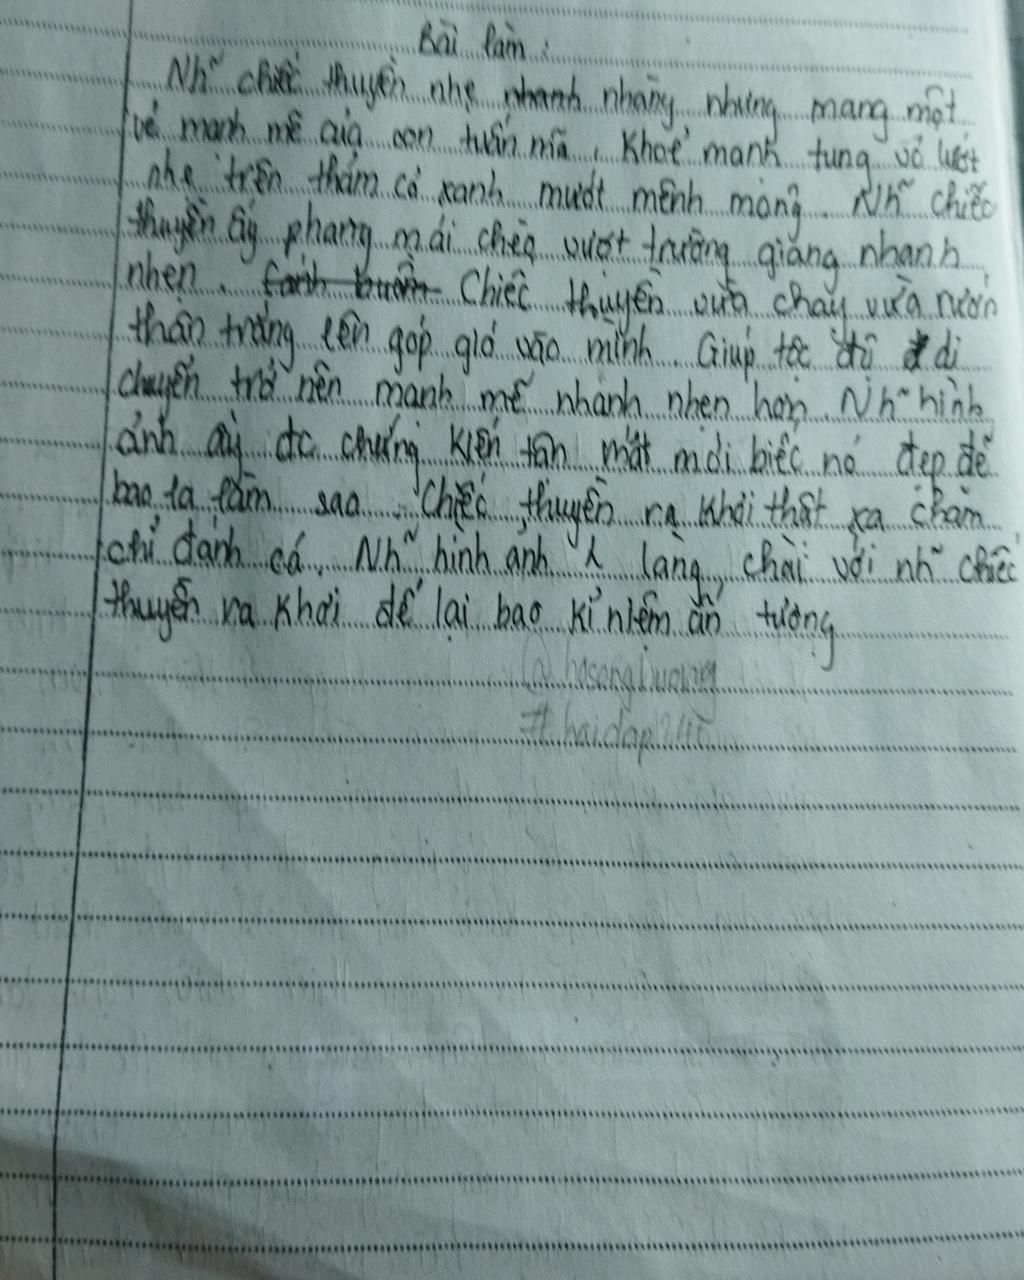 Bài làm :
Nh~ chiếc thuyền nhẹ nhanh nhàng nhưng mang một
vẻ mạnh mẽ của con tuấn mã, khoẻ mạnh tung vó lướt
nhẹ trên thảm cỏ xanh mướt mênh mông. Nh~ chiếc
thuyền ấy phang mái chèo vượt trường giang nhanh
nhẹn. Cánh buồm Chiếc thuyền vừa chạy vừa rướn
thân trắng lên góp gió vào mình. Giúp tốc độ di
chuyển trở nên mạnh mẽ nhanh nhẹn hơn. Nh~ hình
ảnh ấy đc chứng kiến tân mắt mới biếc nó đẹp đẽ
bao la làm sao. Chiếc thuyền ra khơi thật xa chăm
chỉ đánh cá. Nh~ hình ảnh làng chài với nh~ chiếc
thuyền ra khơi để lại bao kỉ niệm ấn tượng